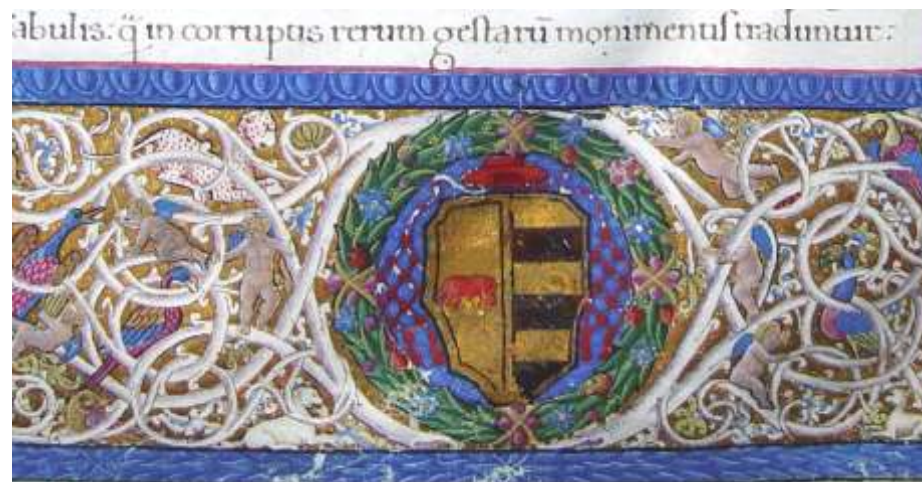 abulis: q̃ in corruptis rerum gestarũ monimentis traduntur: